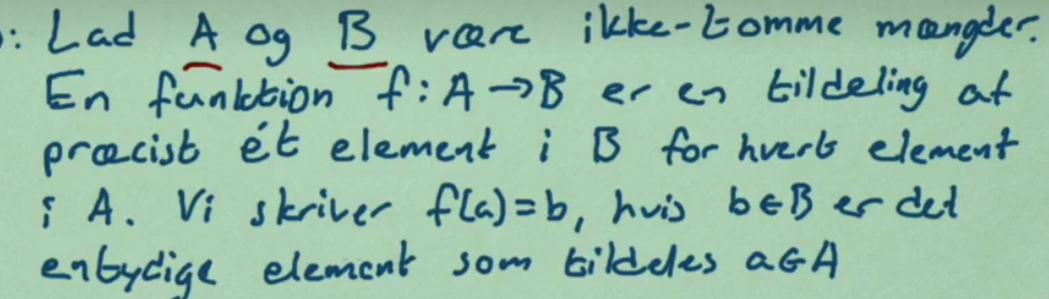 : Lad A og B være ikke-tomme mængder.
En funktion f: A → B er en tildeling af
præcist ét element i B for hvert element
i A. Vi skriver f(a)=b, hvis b∈B er det
entydige element som tildeles a∈A